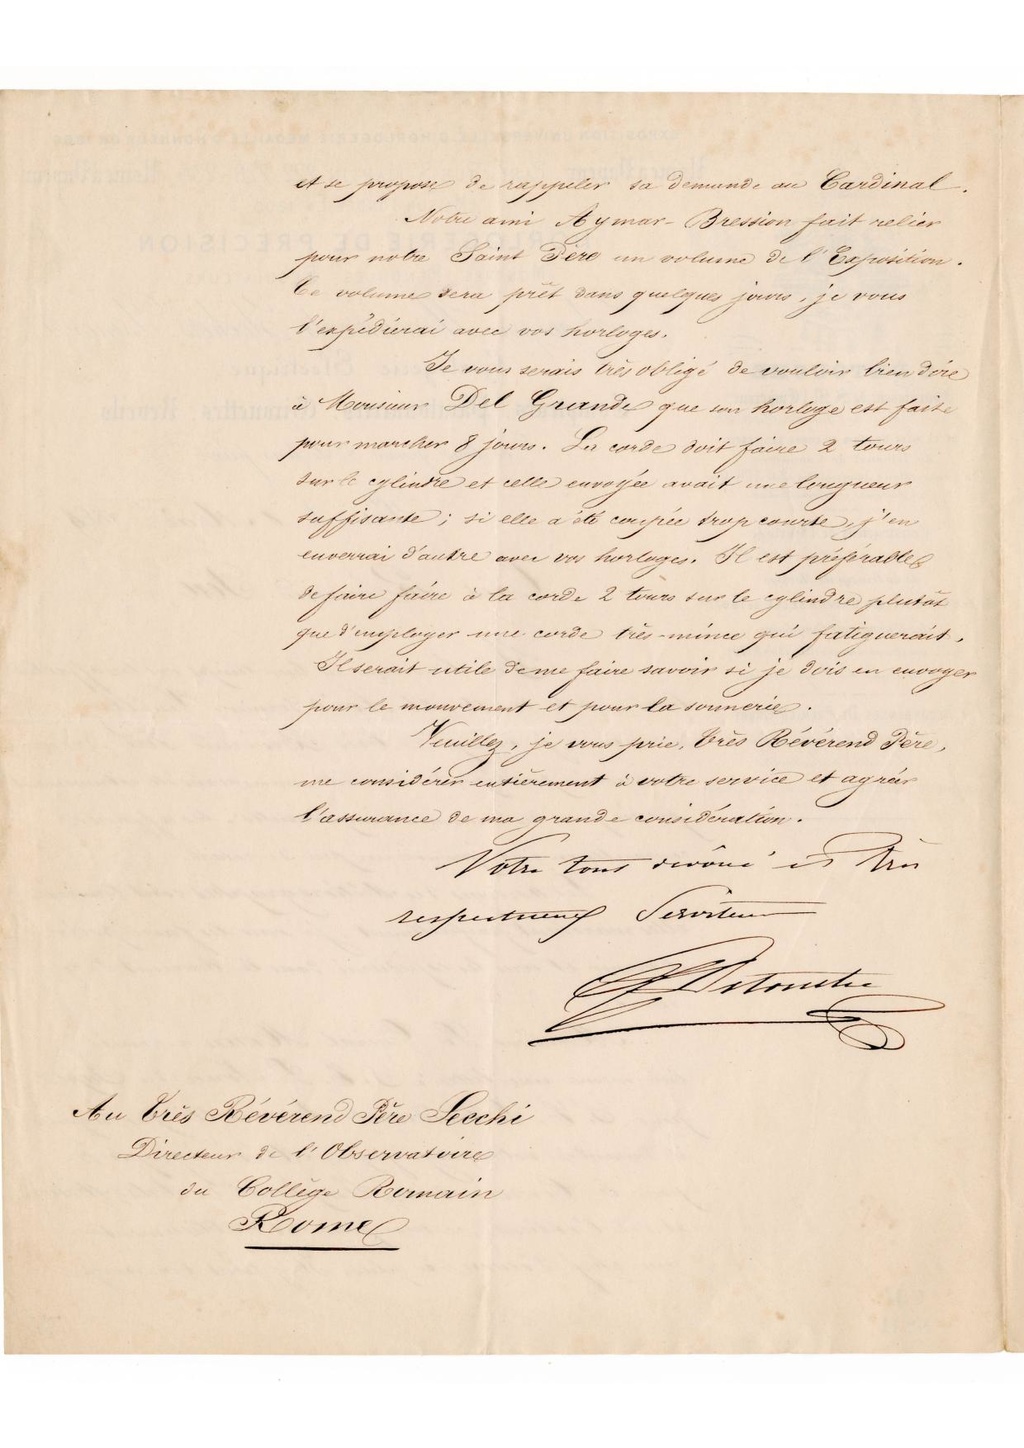 et se propose de rappeler sa demande au Cardinal.
Notre ami Aymar-Bression fait relier
pour notre Saint Père un volume de l'Exposition.
Ce volume sera prêt dans quelques jours, je vous
l'expédierai avec vos horloges.
Je vous serais très obligé de vouloir bien dire
à Monsieur Del Grande que son horloge est faite
pour marcher 8 jours. La corde doit faire 2 tours
sur le cylindre et celle envoyée avait une longueur
suffisante; si elle a été coupée trop courte, j'en
enverrai d'autre avec vos horloges. Il est préférable
de faire faire à la corde 2 tours sur le cylindre plutôt
que d'employer une corde très-mince qui fatiguerait.
Il serait utile de me faire savoir si je dois en envoyer
pour le mouvement et pour la sonnerie.
Veuillez, je vous prie, très Révérend Père,
me considérer entièrement à votre service et agréer
l'assurance de ma grande considération.
Votre tout dévoué et très
respectueux Serviteur
Detouche
Au très Révérend Père Secchi
Directeur de l'Observatoire
du Collège Romain
Rome